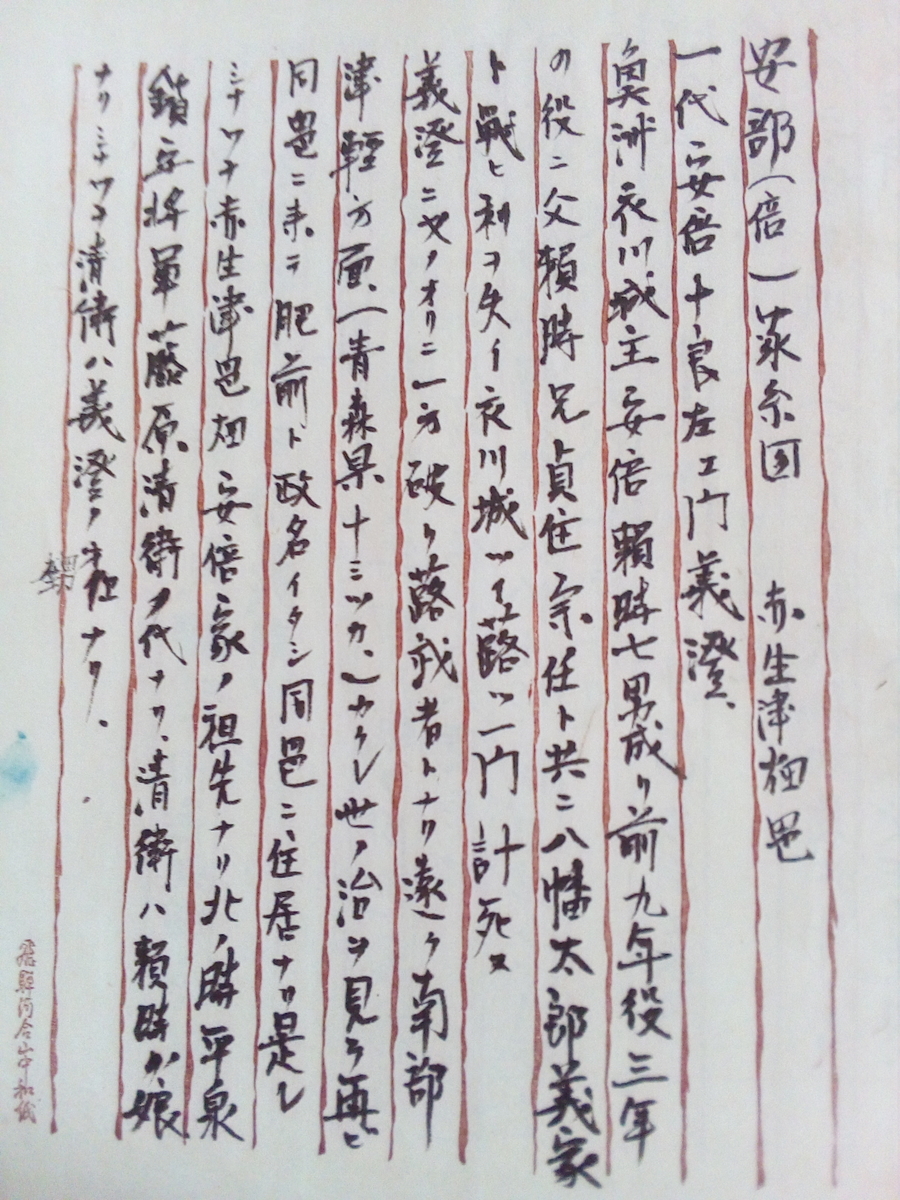 安部(倍)家系図 赤生津 邑
一代 安倍十良左エ門義澄、
奥洲衣川城主安倍頼時七男成リ前九年役三年
の役ニ父頼時兄貞任宗任ト共ニ八幡太郎義家
ト戦ヒ利ヲ失イ衣川城ツイ落ツ一門計死ス
義澄ニヤノオリニ一方破リ落武者トナリ遠ク南部
津軽方面(青森県十ミツカ、)カクレ世ノ治ヲ見ラ再ビ
同邑ニ来テ肥前ト政名イタシ同邑ニ住居ナリ是レ
ミナワチ赤生津邑 安倍家ノ祖先ナリ北ノ時平泉
鎮守将軍藤原清衡ノ代ナリ、清衡ハ頼時ガ娘
ナリミナワチ清衡ハ義澄ノ ナリ、
甥